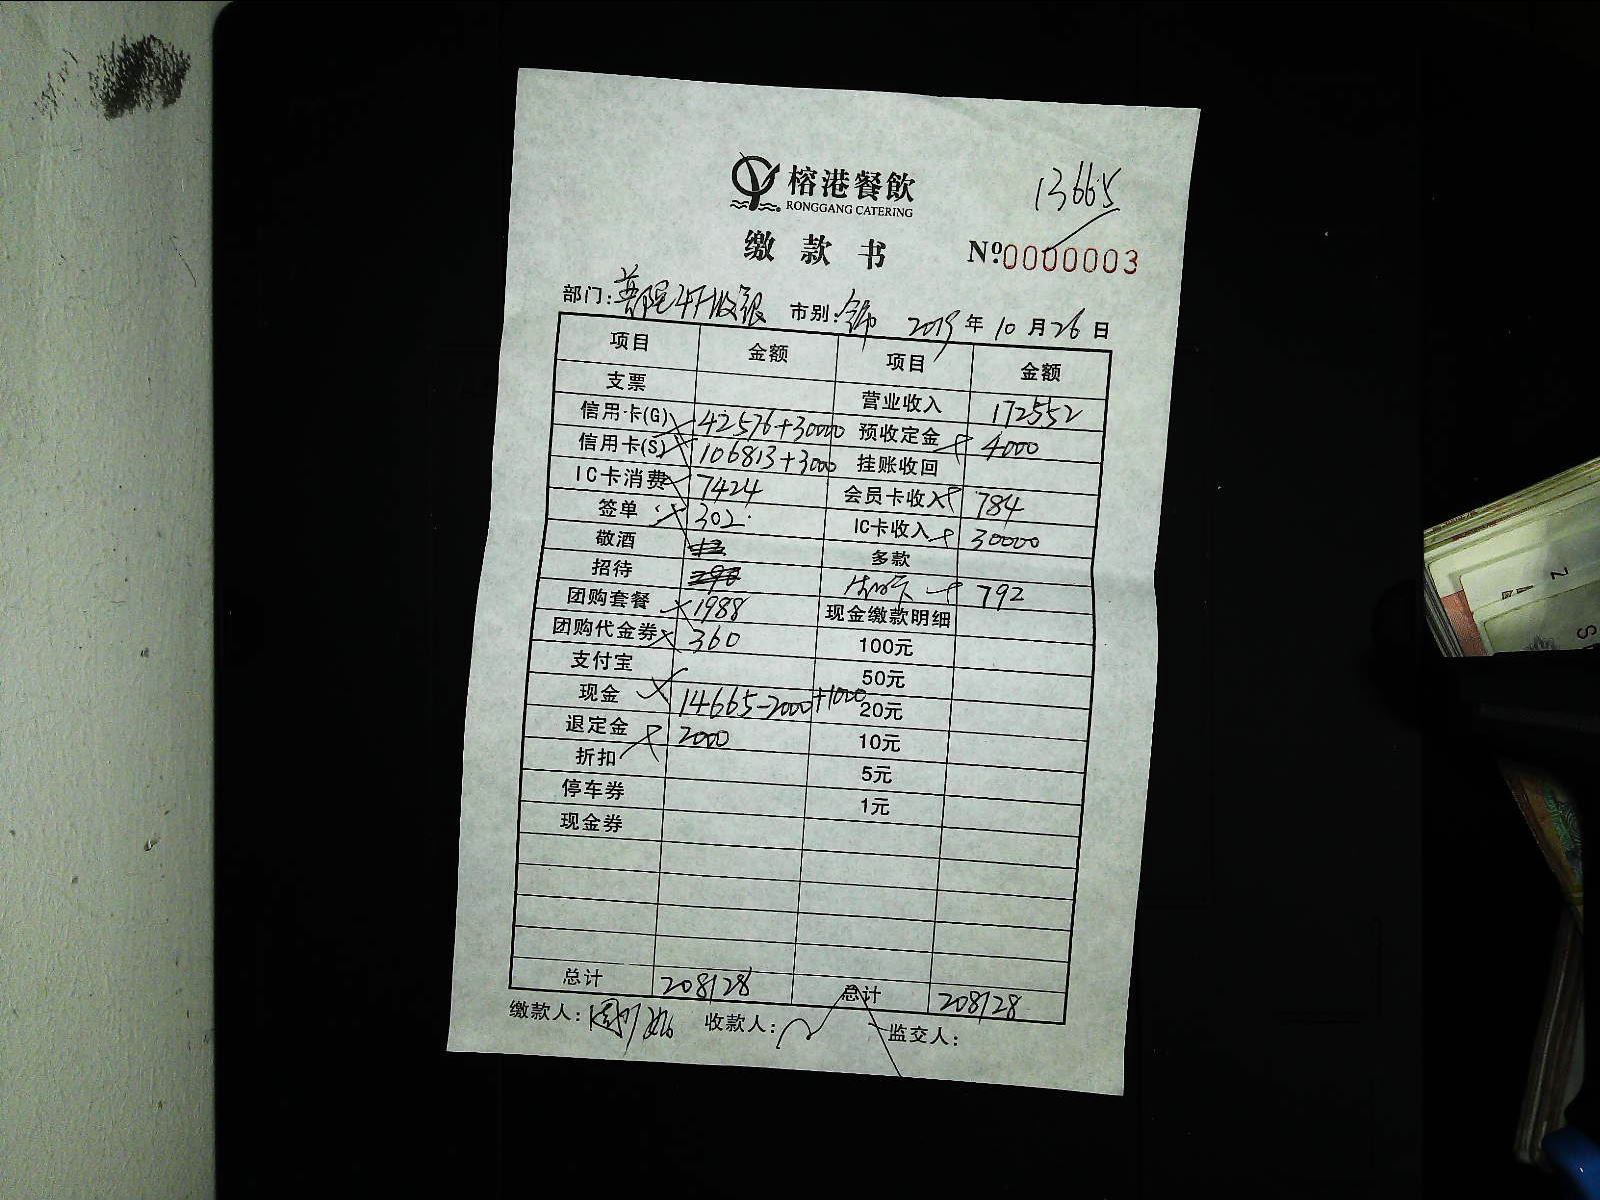 榕港餐飲
RONGGANG CATERING
13665
缴款书 Nº:0000003
部门: 市别: 2019年10月26日
项目 金额 项目 金额
支票 营业收入 172552
信用卡(G) 42576+30000 预收定金 4000
信用卡(S) 106813+3000 挂账收回
IC卡消费 7424 会员卡收入 784
签单 302 IC卡收入 30000
敬酒 多款
招待 792
团购套餐 1988 现金缴款明细
团购代金券 360 100元
支付宝 50元
现金 14665-2000+1000 20元
退定金 2000 10元
折扣 5元
停车券 1元
现金券
总计 208128 总计 208128
缴款人: 收款人: 监交人: